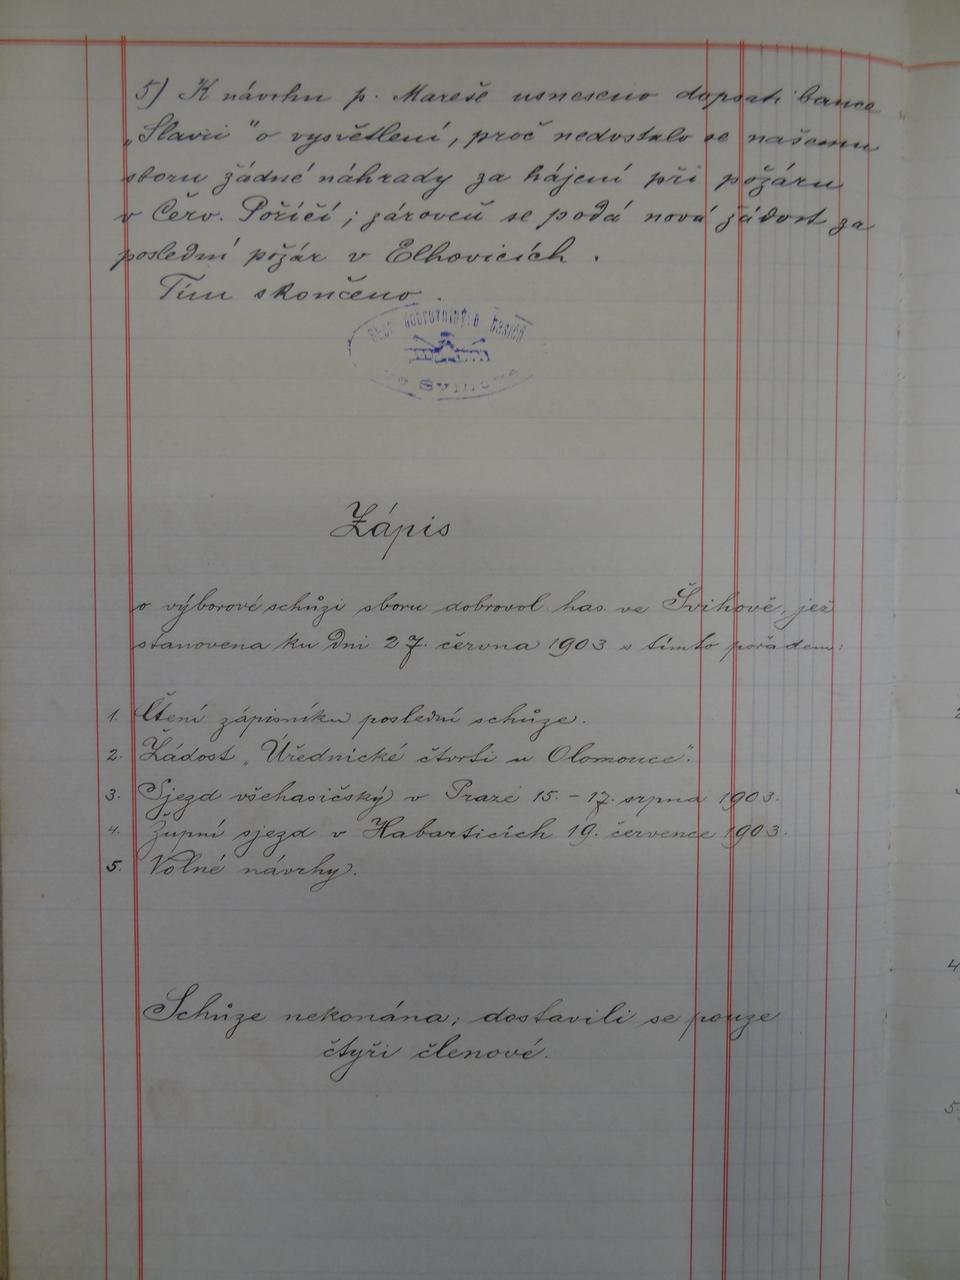 5) K návrhu p. Mareše usneseno dopsati bance
„Slavii" o vysvětlení, proč nedostalo se našemu
sboru žádné náhrady za hájení při požáru
v Červ. Poříčí; zároveň se podá nová žádost za
poslední požár v Elhovicích.
Tím skončeno.
Sbor dobrovolných hasičů
ve Švihově
Zápis
o výborové schůzi sboru dobrovol. has. ve Švihově, jež
stanovena ku dni 27. června 1903 s tímto pořadem:
1. Čtení zápisníku poslední schůze.
2. Žádost „Úřednické čtvrti u Olomouce".
3. Sjezd všehasičský v Praze 15. – 17. srpna 1903.
4. Župní sjezd v Habarticích 19. července 1903.
5. Volné návrhy.
Schůze nekonána; dostavili se pouze
čtyři členové.
4
5.